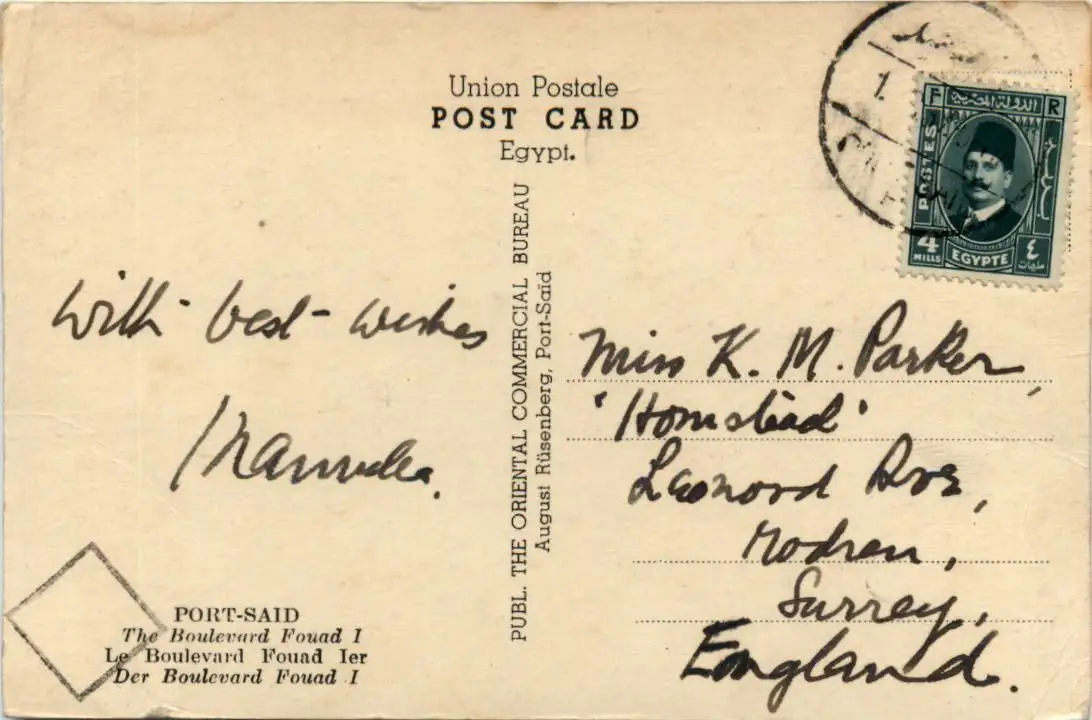 Union Postale
POST CARD
Egypt.
1.
F R
الدولة المصرية
POSTES
4
MILLS
EGYPTE
٤
مليمات
PUBL. THE ORIENTAL COMMERCIAL BUREAU
August Rüsenberg, Port-Saïd
With best wishes
Miss K. M. Parker,
'Homstead'
Leonord Ave,
Surrey,
England.
PORT-SAID
The Boulevard Fouad I
Le Boulevard Fouad Ier
Der Boulevard Fouad I